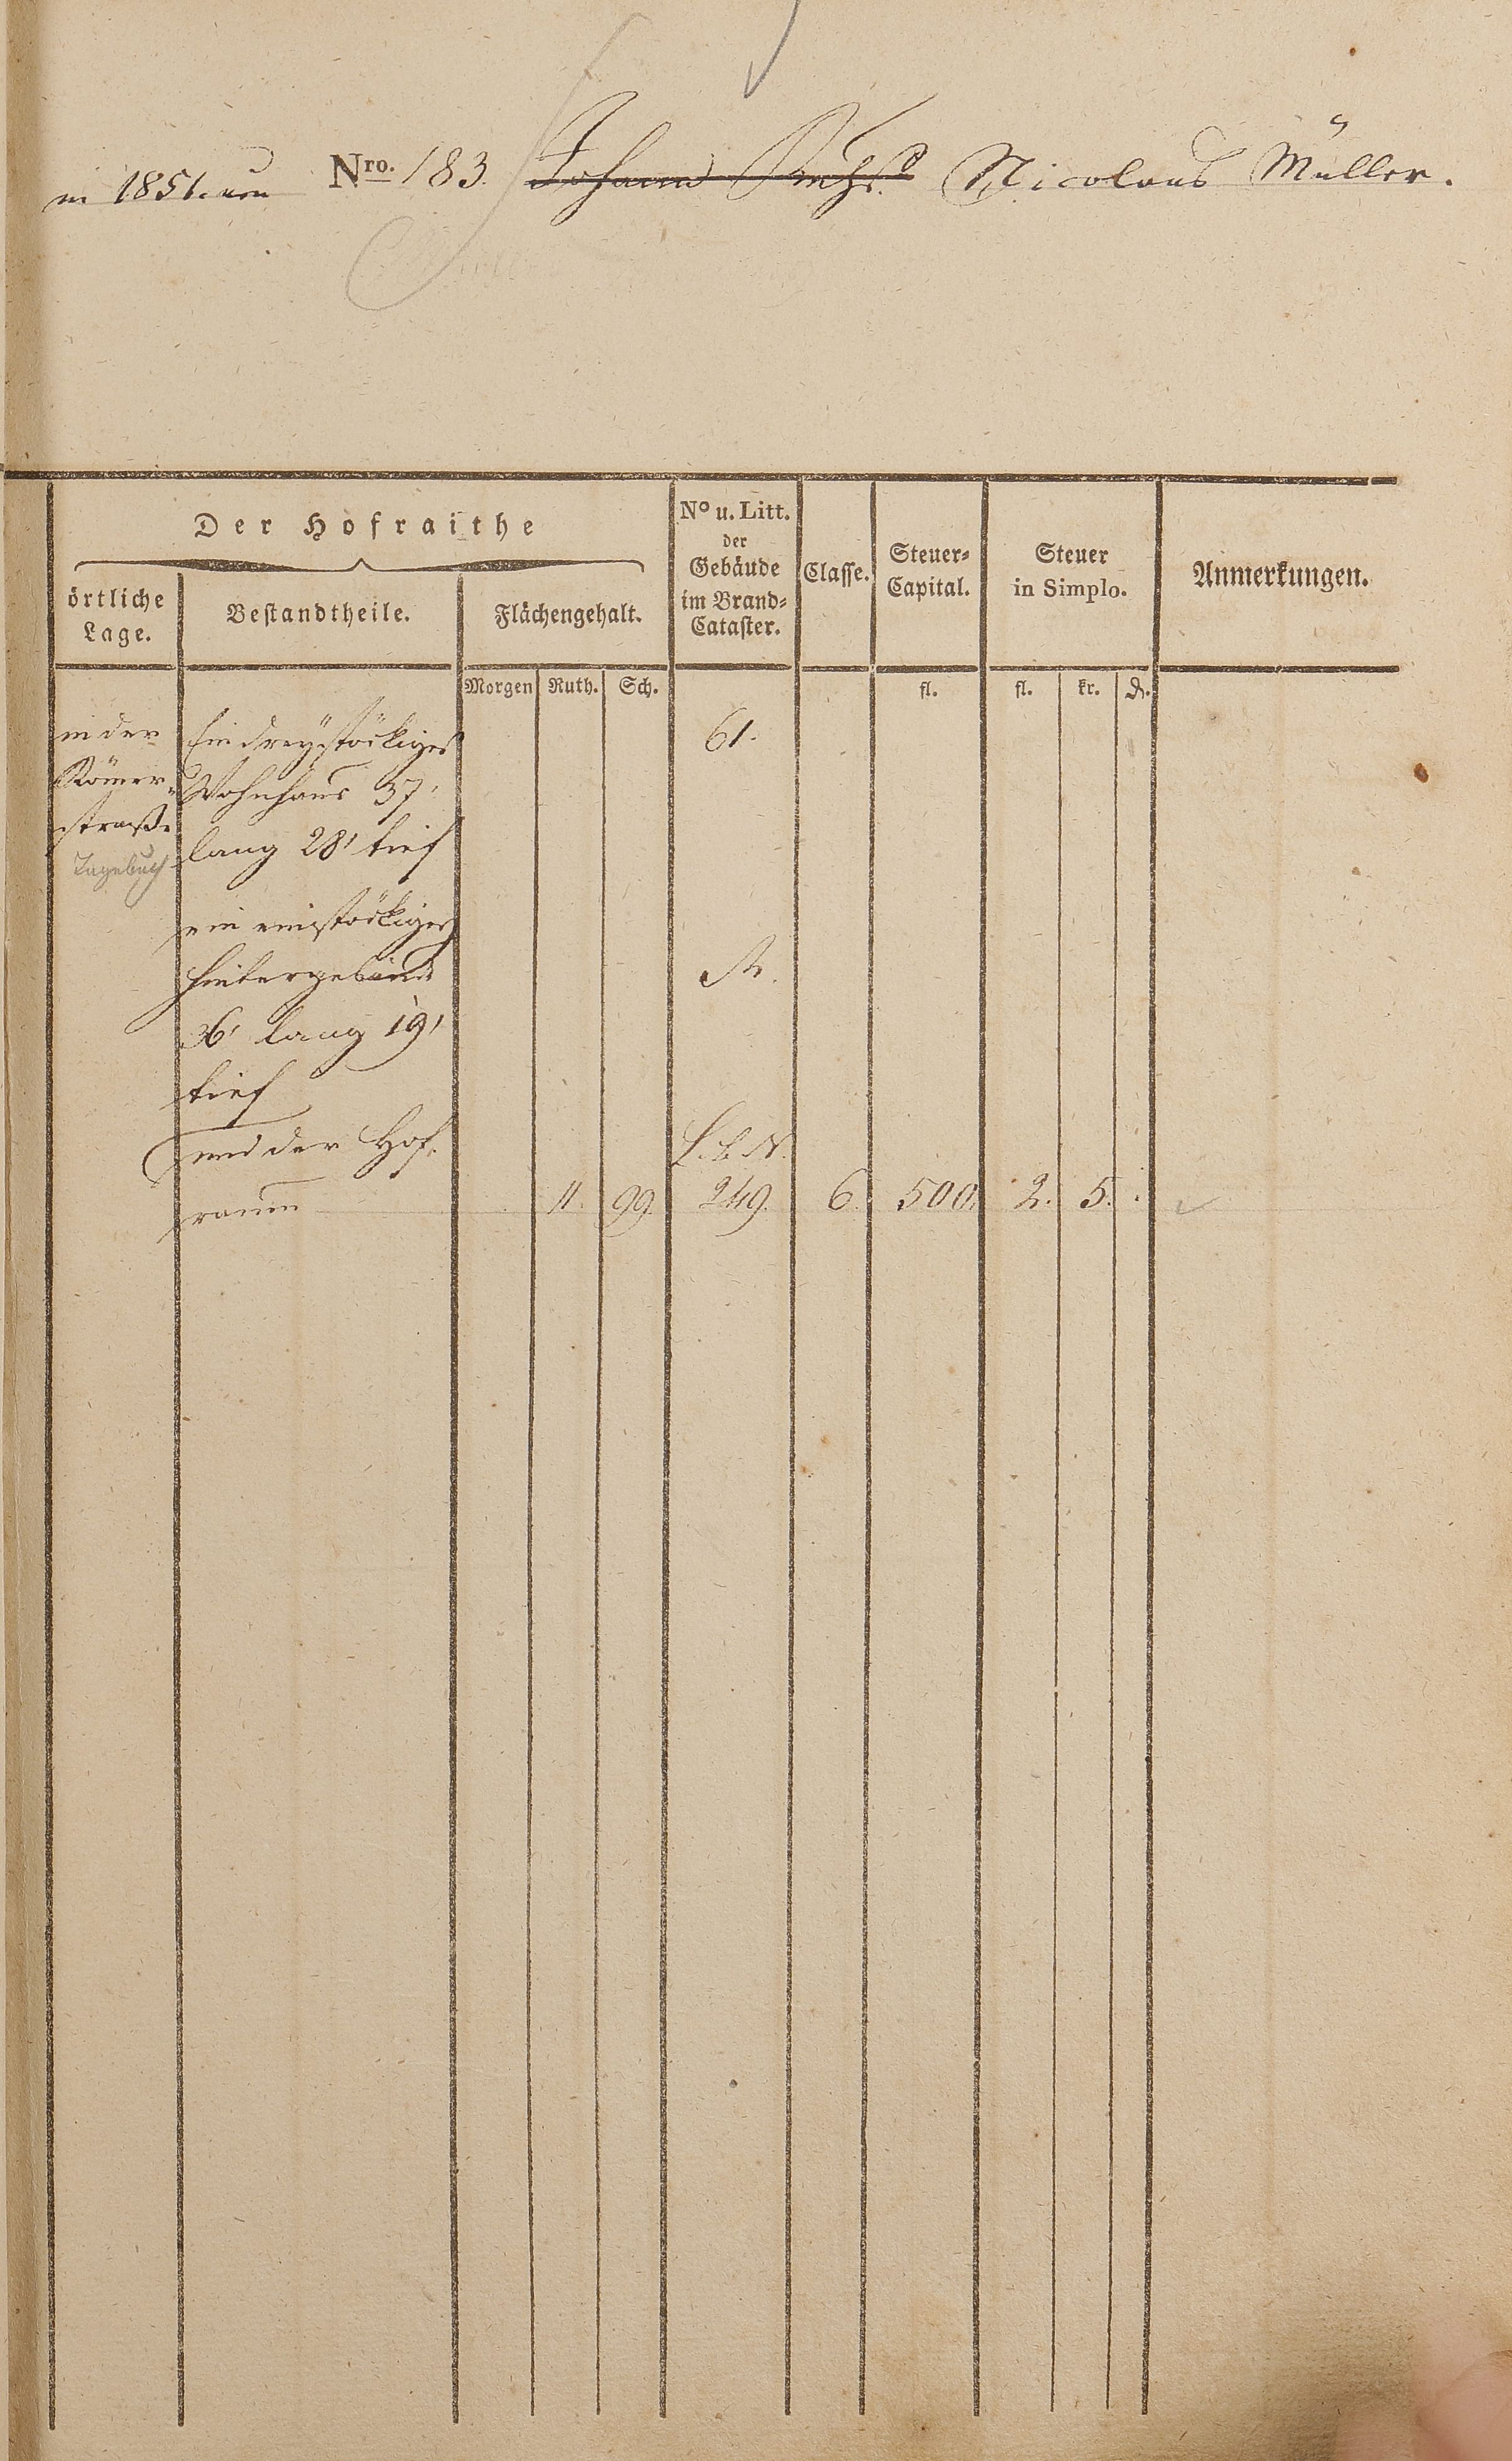 in 1851. Nro. 183. Johann Nicolaus Müller.
Der Hofraithe
örtliche Lage.
Bestandtheile.
Flächengehalt.
No u. Litt. der Gebäude im Brand-Cataster.
Classe.
Steuer-Capital.
Steuer in Simplo.
Anmerkungen.
Morgen Ruth. Sch. fl. fl. kr. d.
in der
Römer-
straße
Tagebuch
Ein dreystöckiges 61.
Wohnhaus 37'
lang 28' tief
ein einstöckiges
Hintergebäude
36' lang 19'
tief
und der Hof-
raum 11. 99. 249. 6. 500. 2. 5. .